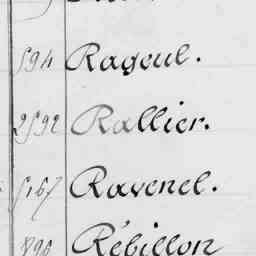 594 Rageul.
2592 Rallier.
5167 Ravenel.
896 Rébillon